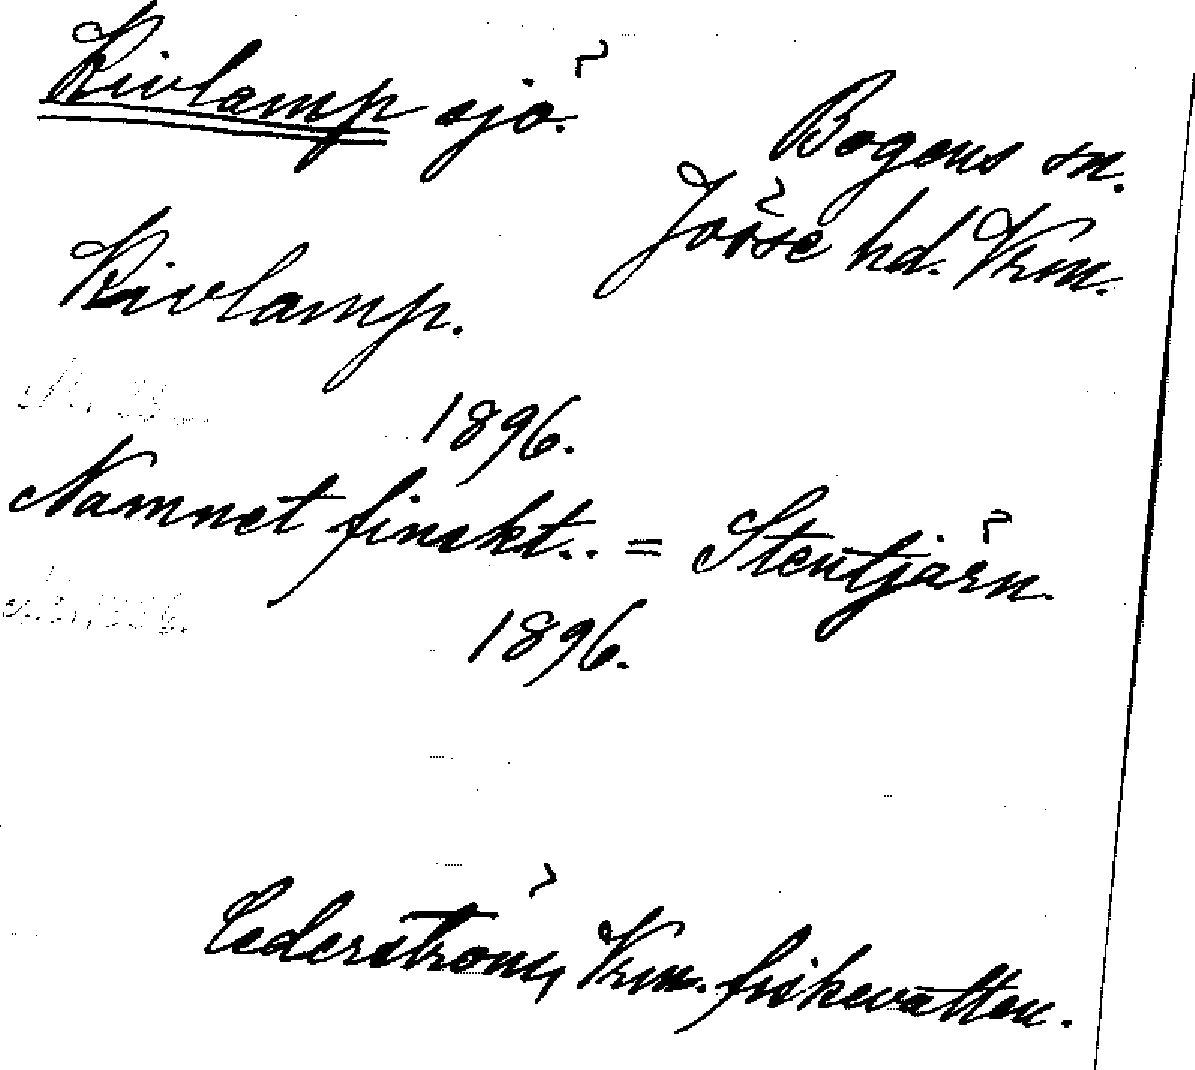 Kivlamp sjö.
Bogens sn.
Jösse hd. Vrm.
Kivlamp.
1896.
Namnet finskt.. = Stentjärn.
1896.
Cederström, Vrm. fiskevatten.